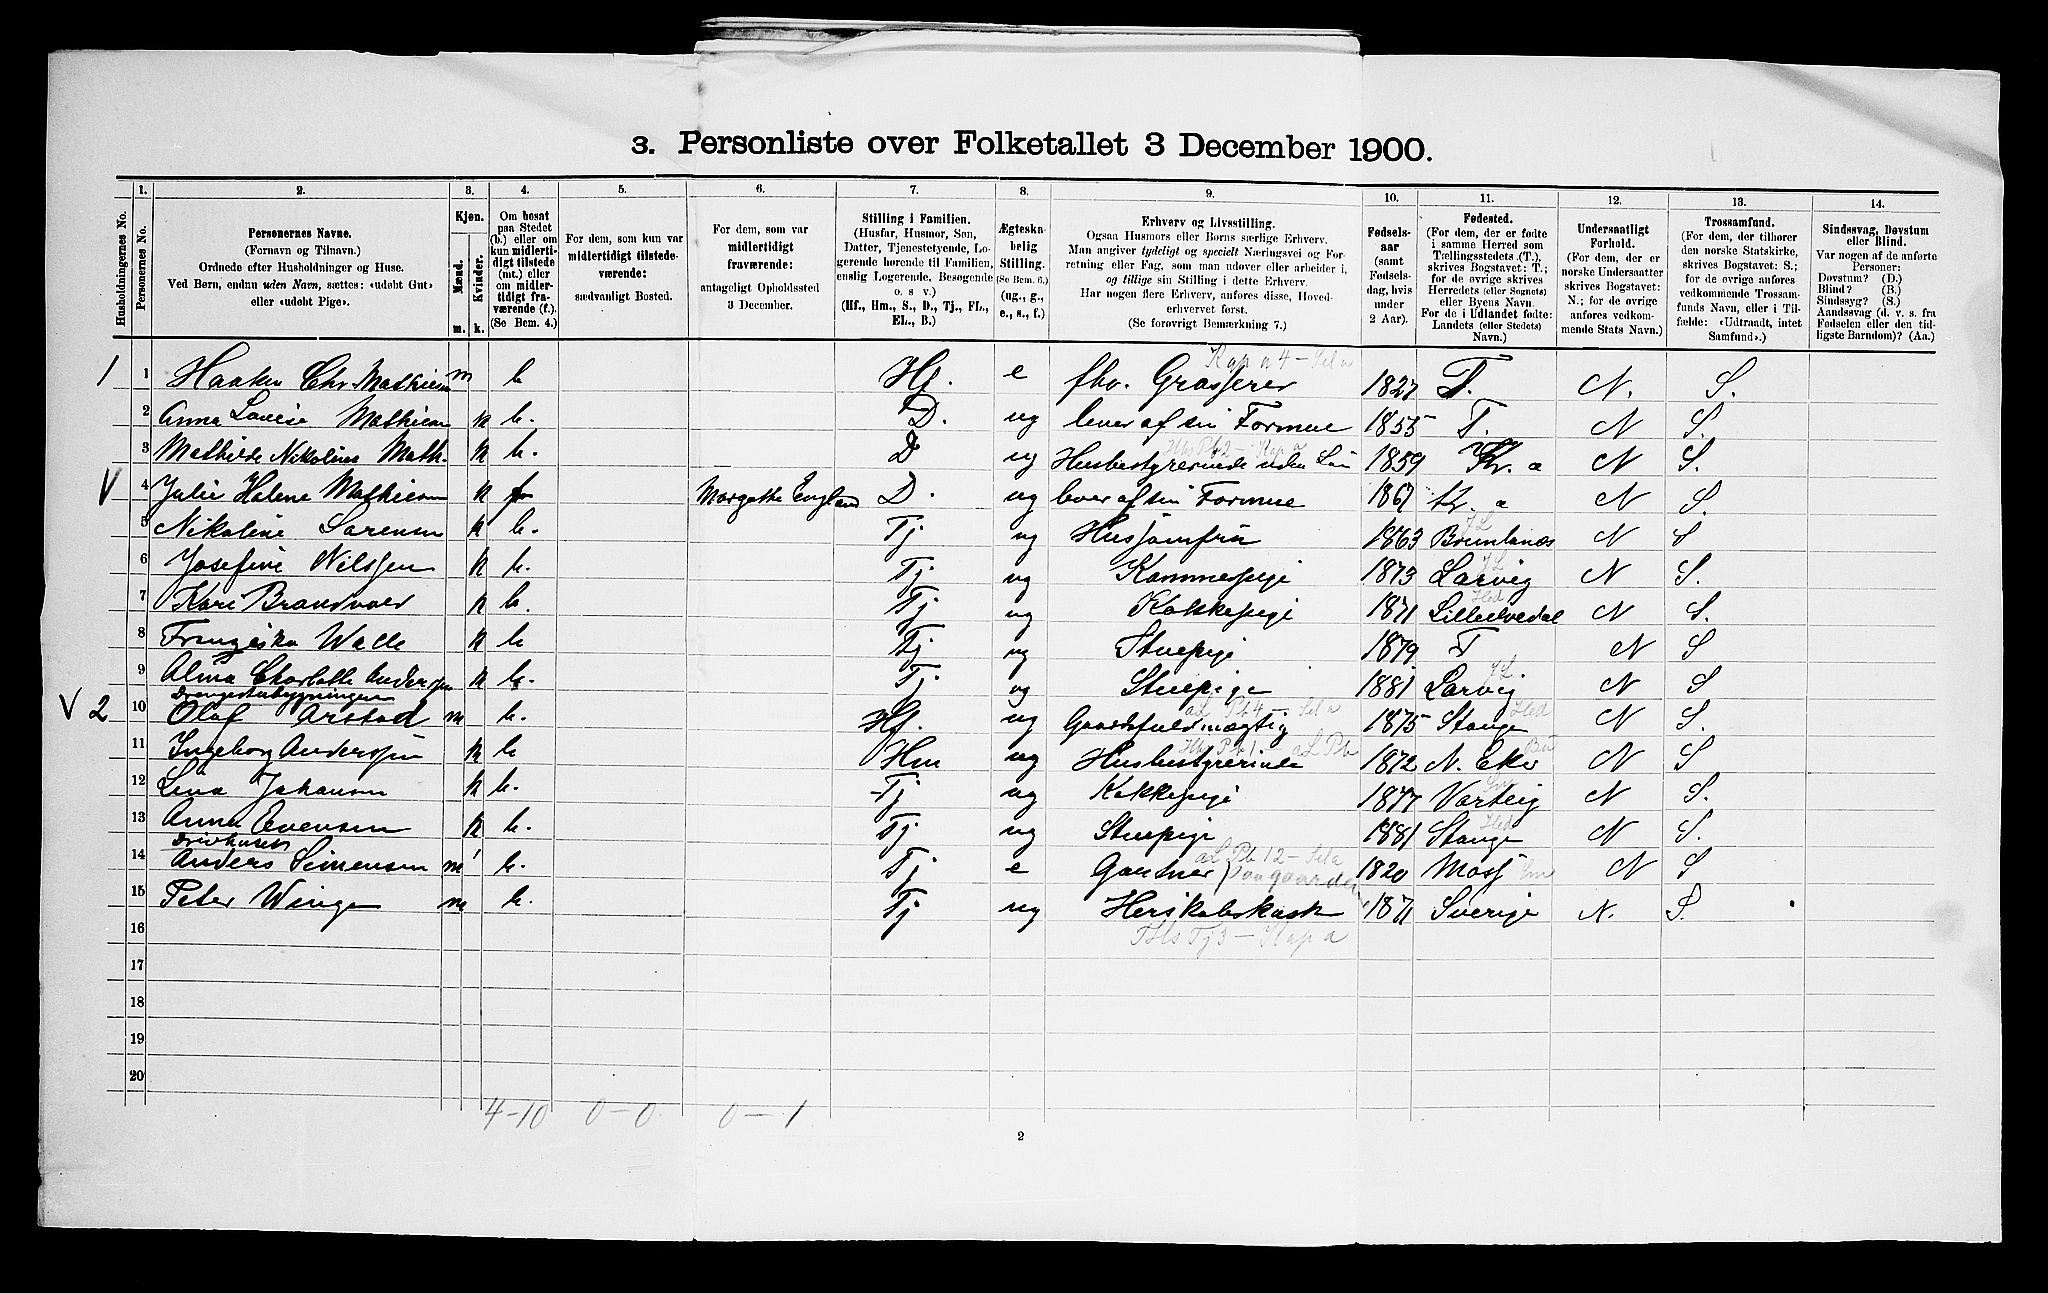 3. Personliste over Folketallet 3 December 1900.
Husholdningernes No.
1. Personernes No.
2. Personernes Navne. (Fornavn og Tilnavn.) Ordnede efter Husholdninger og Huse. Ved Børn, endnu uden Navn, sættes: «udøbt Gut» eller «udøbt Pige».
3. Kjøn. Mænd. m. Kvinder. k.
4. Om bosat paa Stedet (b.) eller om kun midlertidigt tilstede (mt.) eller om midlertidigt fraværende (f.). (Se Bem. 4.)
5. For dem, som kun var midlertidigt tilstedeværende: sædvanligt Bosted.
6. For dem, som var midlertidigt fraværende: antageligt Opholdssted 3 December.
7. Stilling i Familien. (Husfar, Husmor, Søn, Datter, Tjenestetyende, Logerende hørende til Familien, enslig Logerende, Besøgende o. s. v.) (Hf., Hm., S., D., Tj., FL., EL., B.)
8. Ægteskabelig Stilling. (Se Bem. 6.) (ug., g., e., s., f.)
9. Erhverv og Livsstilling. Ogsaa Husmors eller Børns særlige Erhverv. Man angiver tydeligt og specielt Næringsvei og Forretning eller Fag, som man udøver eller arbeider i, og tillige sin Stilling i dette Erhverv. Har nogen flere Erhverv, anføres disse, Hovederhvervet først. (Se forøvrigt Bemærkning 7.)
10. Fødselsaar (samt Fødselsdag, hvis under 2 Aar).
11. Fødested. (For dem, der er fødte i samme Herred som Tællingsstedets (T.), skrives Bogstavet: T.; for de øvrige skrives Herredets (eller Sognets) eller Byens Navn. For de i Udlandet fødte: Landets (eller Stedets) Navn.)
12. Undersaatligt Forhold. (For dem, der er norske Undersaatter skrives Bogstavet: N.; for de øvrige anføres vedkommende Stats Navn.)
13. Trossamfund. (For dem, der tilhører den norske Statskirke, skrives Bogstavet: S.; for de øvrige anføres vedkommende Trossamfunds Navn, eller i Tilfælde: «Udtraadt, intet Samfund».)
14. Sindssvag, Døvstum eller Blind. Var nogen af de anførte Personer: Døvstum? (D.) Blind? (B.) Sindssyg? (S.) Aandssvag (d. v. s. fra Fødselen eller den tidligste Barndom)? (Aa.)
Kap a 4 – Sela
1 1 Haaken Chr. Mathiesen m b Hf. e fhv. Grosserer 1827 T. N. S.
2 Anna Lovise Mathiesen k b. D. ug lever af sin Formue 1855 T. N S.
Hbs Pb 2 – Kap a
3 Mathilde Nikoline Math. k b. D ug Husbestyrerinde uden Løn 1859 Kr. a N S.
V 4 Julie Helene Mathiesen k f Margathe England D. ug lever af sin Formue 1867 Kr. a N S.
JL
5 Nikoline Sørensen k b. Tj ug Husjomfru 1863 Brunlanes N S
JL
6 Josefine Nilssen k b. Tj ug Kammerpige 1873 Larvig N S.
Hed
7 Kari Brandvold k b. Tj ug Kokkepige 1871 Lilleelvedal N S.
8 Franziska Walle k b Tj ug Stuepige 1879 T N S
JL
9 Alma Charlotte Anderssen k b. Tj ug Stuepige 1881 Larvig N S
Drengestubygningen
aL Pb 4 – Sela Hed
V 2 10 Olaf Arstad m b. Hf. ug Gaardsfuldmægtig 1875 Stange N S.
Hbs Pb 1 – aL Pb Bu
11 Ingeborg Anderssen k b Hm ug Husbestyrerinde 1872 N. Eker N S
12 Lina Johansen k b. Tj ug Kokkepige 1877 Varteig N S.
Hed
13 Anna Evensen k b. Tj ug Stuepige 1881 Stange N S.
Drivhuset
aL Pb 12 – Sela
14 Anders Simensen m b. Tj e Gartner 1820 Moss N S
15 Peter Winge m b. Tj ug Herskabskusk 1871 Sverige N. S.
THs Tj 3 – Kap a
16
17
18
19
20
4–10 0–0 0–1
2